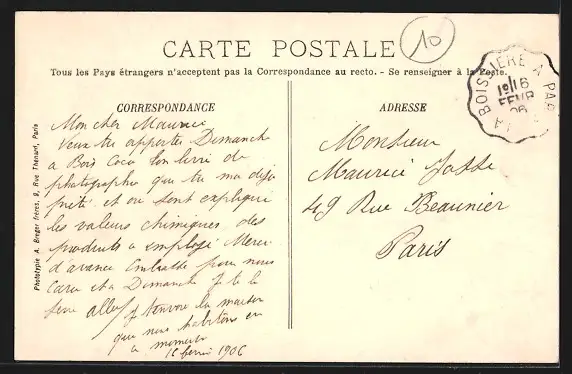 10
CARTE POSTALE
Tous les Pays étrangers n'acceptent pas la Correspondance au recto. - Se renseigner à la Poste.
BOISSIERE A PAR
19/16
FEVR
06
CORRESPONDANCE
Mon cher Maurice
Veux tu apporter Dimanche
a Bois Colo ton livre de
photographie que tu m'a déjà
prêté et ou sont expliqué
les valeurs chimiques des
produits a employé Merci
d'avance Embrasse pour nous
Caro et a Dimanche Je te le
ferai aller Je t'envoie la maison
que nous habitons en
ce moment
16 février 1906
ADRESSE
Monsieur
Maurice
49 Rue Beaunier
Paris
Phototypie A. Breger frères, 9, Rue Thénard, Paris